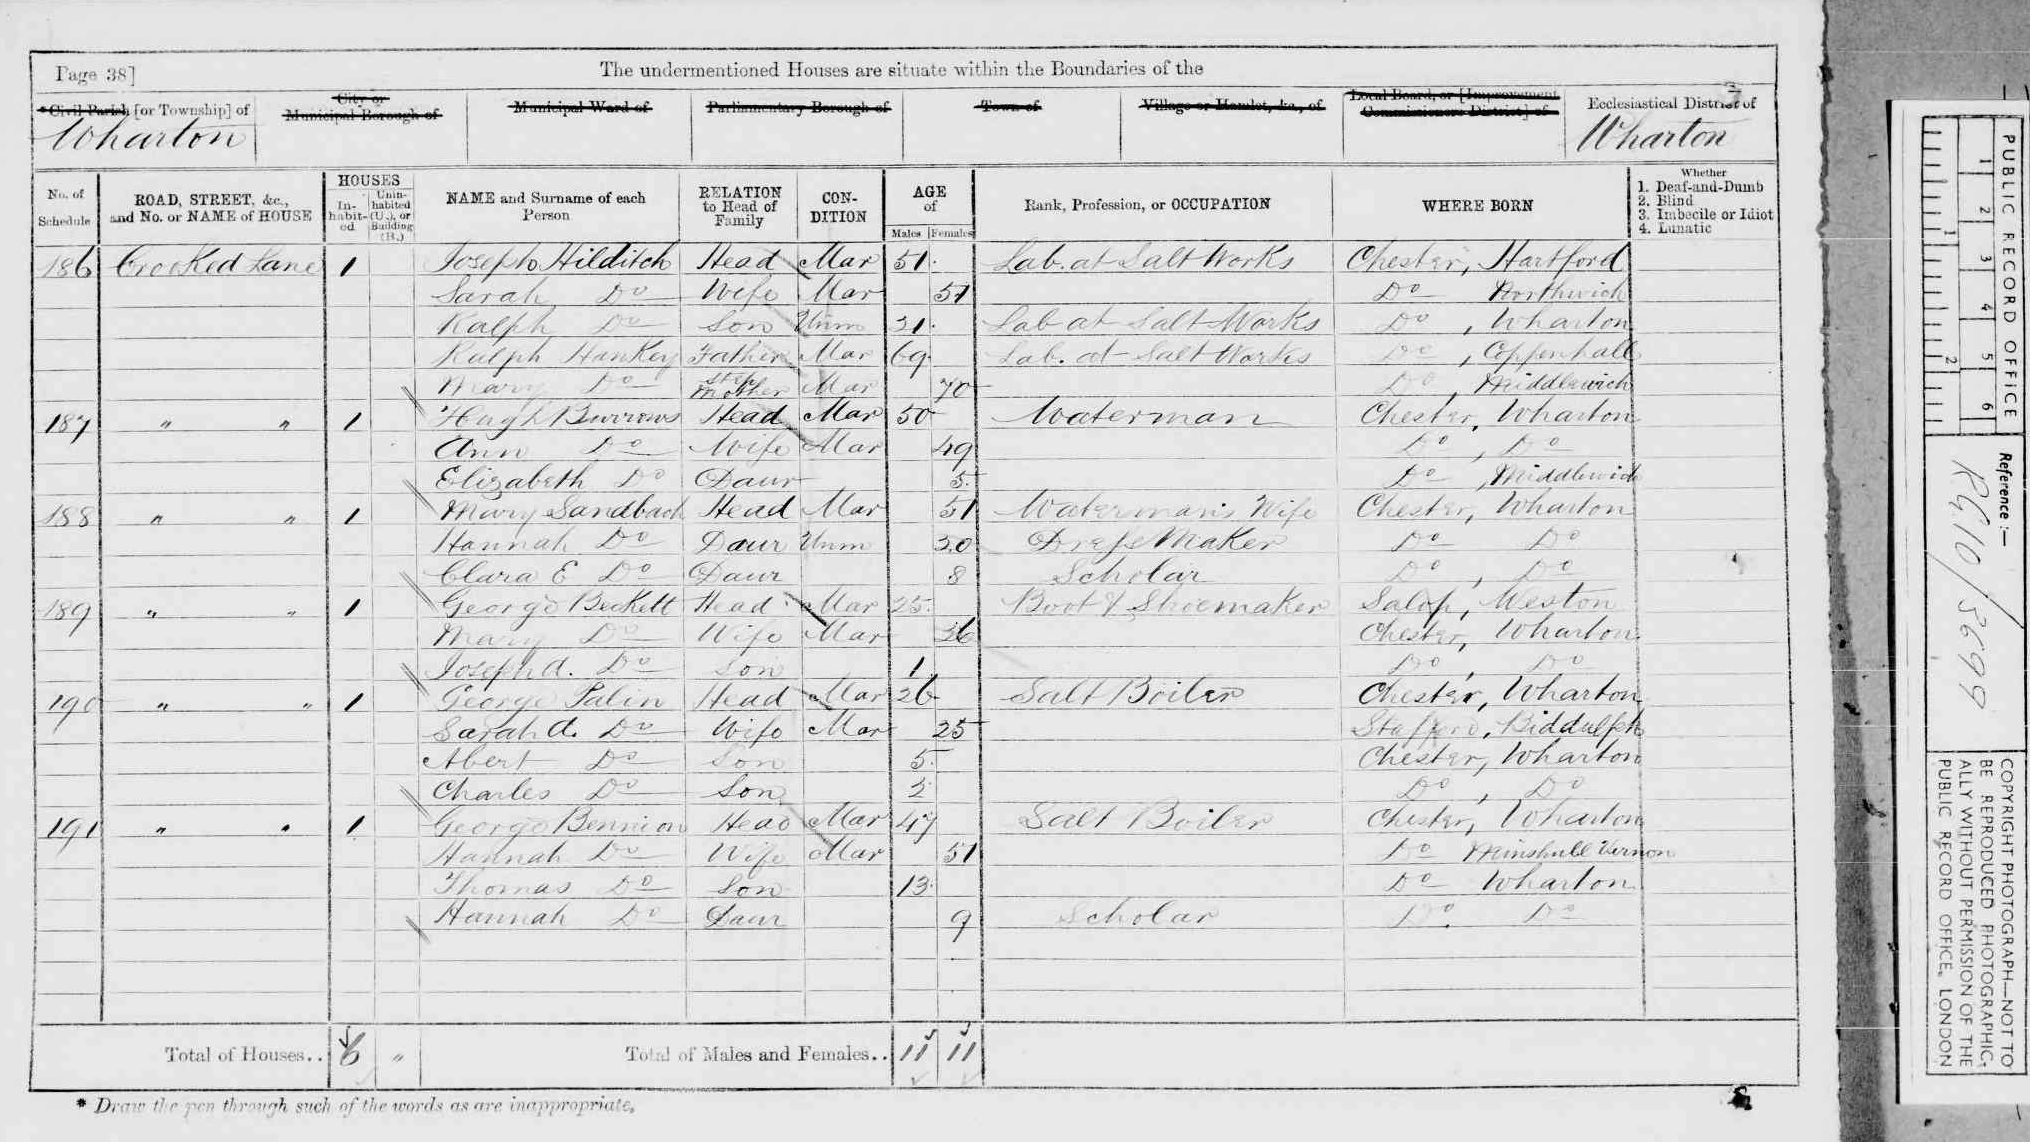 Page 38]
The undermentioned Houses are situate within the Boundaries of the
*Civil Parish [or Township] of
Wharton
City or Municipal Borough of
Municipal Ward of
Parliamentary Borough of
Town of
Village or Hamlet, &c., of
Local Board, or [Improvement Commissioners District] of
Ecclesiastical District of
Wharton
No. of Schedule
ROAD, STREET, &c., and No. or NAME of HOUSE
HOUSES
In-habit-ed
Unin-habited (U.), or Building (B.)
NAME and Surname of each Person
RELATION to Head of Family
CON-DITION
AGE of
Males
Females
Rank, Profession, or OCCUPATION
WHERE BORN
Whether
1. Deaf-and-Dumb
2. Blind
3. Imbecile or Idiot
4. Lunatic
186 Crooked Lane 1 Joseph Hilditch Head Mar 51 Lab. at Salt Works Chester, Hartford
Sarah Do Wife Mar 51 Do Northwich
Ralph Do Son Unm 21 Lab at Salt Works Do, Wharton
Ralph Hankey Father Mar 69 Lab. at Salt Works Do, Coppenhall
Mary Do Step Mother Mar 70 Do, Middlewich
187 " " 1 Hugh Burrows Head Mar 50 Waterman Chester, Wharton
Ann Do Wife Mar 49 Do, Do
Elizabeth Do Daur 5 Do, Middlewich
188 " " 1 Mary Sandbach Head Mar 51 Waterman's Wife Chester, Wharton
Hannah Do Daur Unm 20 Dress Maker Do Do
Clara E Do Daur 8 Scholar Do, Do
189 " " 1 George Beckett Head Mar 25 Boot & Shoemaker Salop, Weston
Mary Do Wife Mar 26 Chester, Wharton
Joseph A. Do Son 1 Do, Do
190 " " 1 George Palin Head Mar 26 Salt Boiler Chester, Wharton
Sarah A. Do Wife Mar 25 Stafford, Biddulph
Abert Do Son 5 Chester, Wharton
Charles Do Son 2 Do, Do
191 " " 1 George Bennion Head Mar 47 Salt Boiler Chester, Wharton
Hannah Do Wife Mar 51 Do Minshull Vernon
Thomas Do Son 13 Do Wharton
Hannah Do Daur 9 Scholar Do. Do
Total of Houses.. 6 "
Total of Males and Females.. 11 11
* Draw the pen through such of the words as are inappropriate.
PUBLIC RECORD OFFICE
1 2 3 4 5 6
1 2
Reference:—
RG10/3699
COPYRIGHT PHOTOGRAPH—NOT TO
BE REPRODUCED PHOTOGRAPHIC-
ALLY WITHOUT PERMISSION OF THE
PUBLIC RECORD OFFICE, LONDON